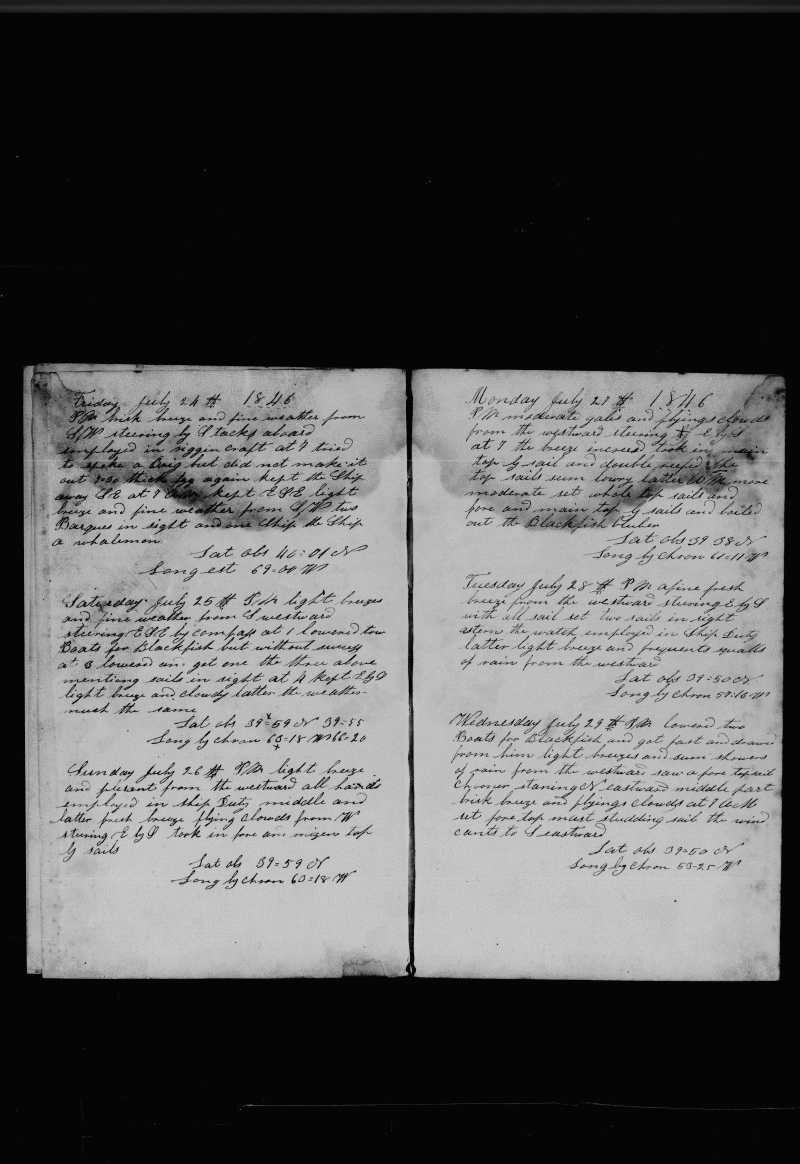 Friday July 24th 1846
P.M. brisk breeze and fine weather from
S/W steering by S tacks aboard
employed in riggin craft at 7 tried
to speke a Brig but did not make it
out 8-30 thick fog again kept the Ship
away S.E at 7 kept E S E light
breeze and fine weather from S/W two
Barques in sight and one Ship the Ship
a whalemon
Lat obs 40=01 N
Long est 69=00 W
Saturday July 25th P.M. light breezes
and fine weather from S westward
steering E S E by compass at 1 lowered tow
Boats for Blackfish but without success
at 3 lowerd an got one the three above
mentiung sails in sight at 4 kept E by S
light breeze and cloudy latter the weather
much the same
Lat obs 39=59 N 39=55
Long by chron 63=18 W 66=20
Sunday July 26th P.M. light breeze
and plesant from the westward all hands
employed in ship Duty middle and
latter fresh breeze flying clouds from W
stering E by S took in fore an mizen top
G sails
Lat obs 39=59 N
Long by chron 63=18 W
Monday July 27th 1846
P.M. moderate gales and flyings clouds
from the westward steering E by S
at 7 the breeze incresed took in main
top G sail and double reefed the
top sails sum lowry latter A M more
moderate set whole top sails and
fore and main top G sails and boiled
out the Blackfish bluber
Lat obs 39 38 N
Long by chron 61=11 W
Tuesday July 28th P.M. a fine fresh
breeze from the westward stering E by S
with all sail set two sails in sight
astern the watch employed in Ship Duty
latter light breeze and frequents squalls
of rain from the westward
Lat obs 39=50 N
Long by chron 57=10 W
Wednesday July 29th P.M. lowerd two
Boats for Blackfish and got fast and drawd
from him light breezes and sum showers
of rain from the westward saw a fore topsail
Chooner staning N eastward middle part
brisk breeze and flyings clouds at 7 A M
set fore top mast studding sail the wind
cants to S eastward
Lat obs 39=50 N
Long by chron 53=25 W